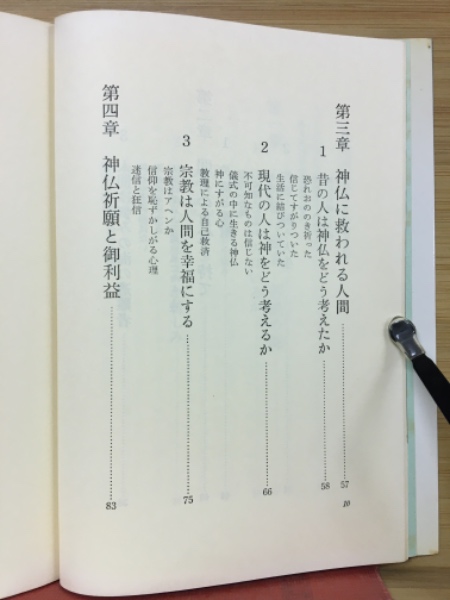 第三章　神仏に救われる人間……57
1　昔の人は神仏をどう考えたか……58
恐れおののき祈った
信じてすがりついた
生活に結びついていた
2　現代の人は神をどう考えるか……66
不可知なものは信じない
儀式の中に生きる神仏
神にすがる心
教理による自己救済
3　宗教は人間を幸福にする……75
宗教はアヘンか
信仰を恥ずかしがる心理
迷信と狂信
第四章　神仏祈願と御利益……83
10